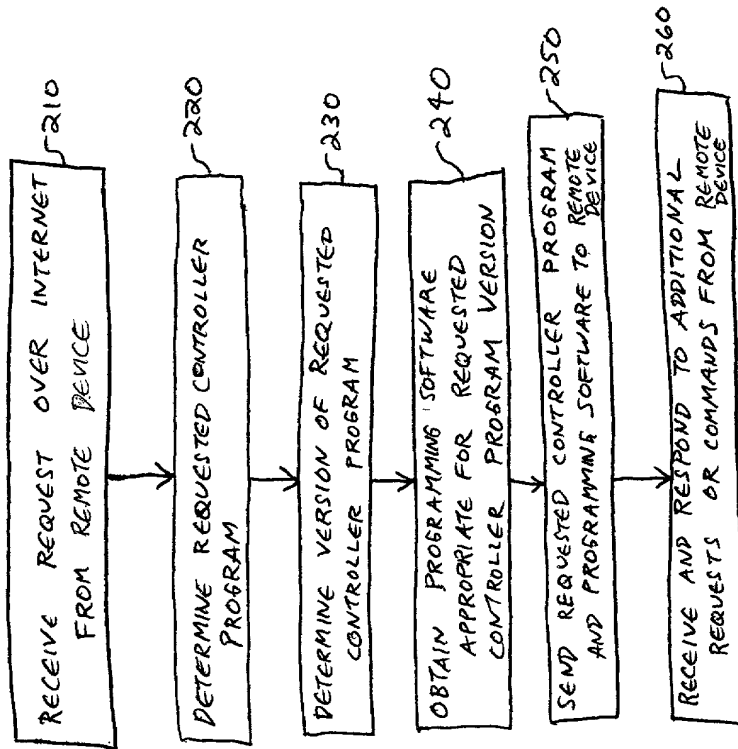 RECEIVE REQUEST OVER INTERNET
FROM REMOTE DEVICE
210
DETERMINE REQUESTED CONTROLLER
PROGRAM
220
DETERMINE VERSION OF REQUESTED
CONTROLLER PROGRAM
230
OBTAIN PROGRAMMING SOFTWARE
APPROPRIATE FOR REQUESTED
CONTROLLER PROGRAM VERSION
240
SEND REQUESTED CONTROLLER PROGRAM
AND PROGRAMMING SOFTWARE TO REMOTE
DEVICE
250
RECEIVE AND RESPOND TO ADDITIONAL
REQUESTS OR COMMANDS FROM REMOTE
DEVICE
260